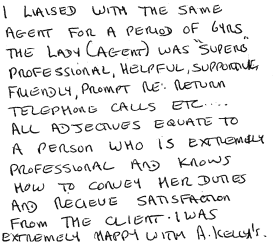 I LIAISED WITH THE SAME
AGENT FOR A PERIOD OF 6YRS
THE LADY (AGENT) WAS "SUPERB"
PROFESSIONAL, HELPFUL, SUPPORTIVE,
FRIENDLY, PROMPT RE: RETURN
TELEPHONE CALLS ETC....
ALL ADJECTIVES EQUATE TO
A PERSON WHO IS EXTREMELY
PROFESSIONAL AND KNOWS
HOW TO CONVEY HER DUTIES
AND RECIEVE SATISFACTION
FROM THE CLIENT. I WAS
EXTREMELY HAPPY WITH A. KELLY'S.